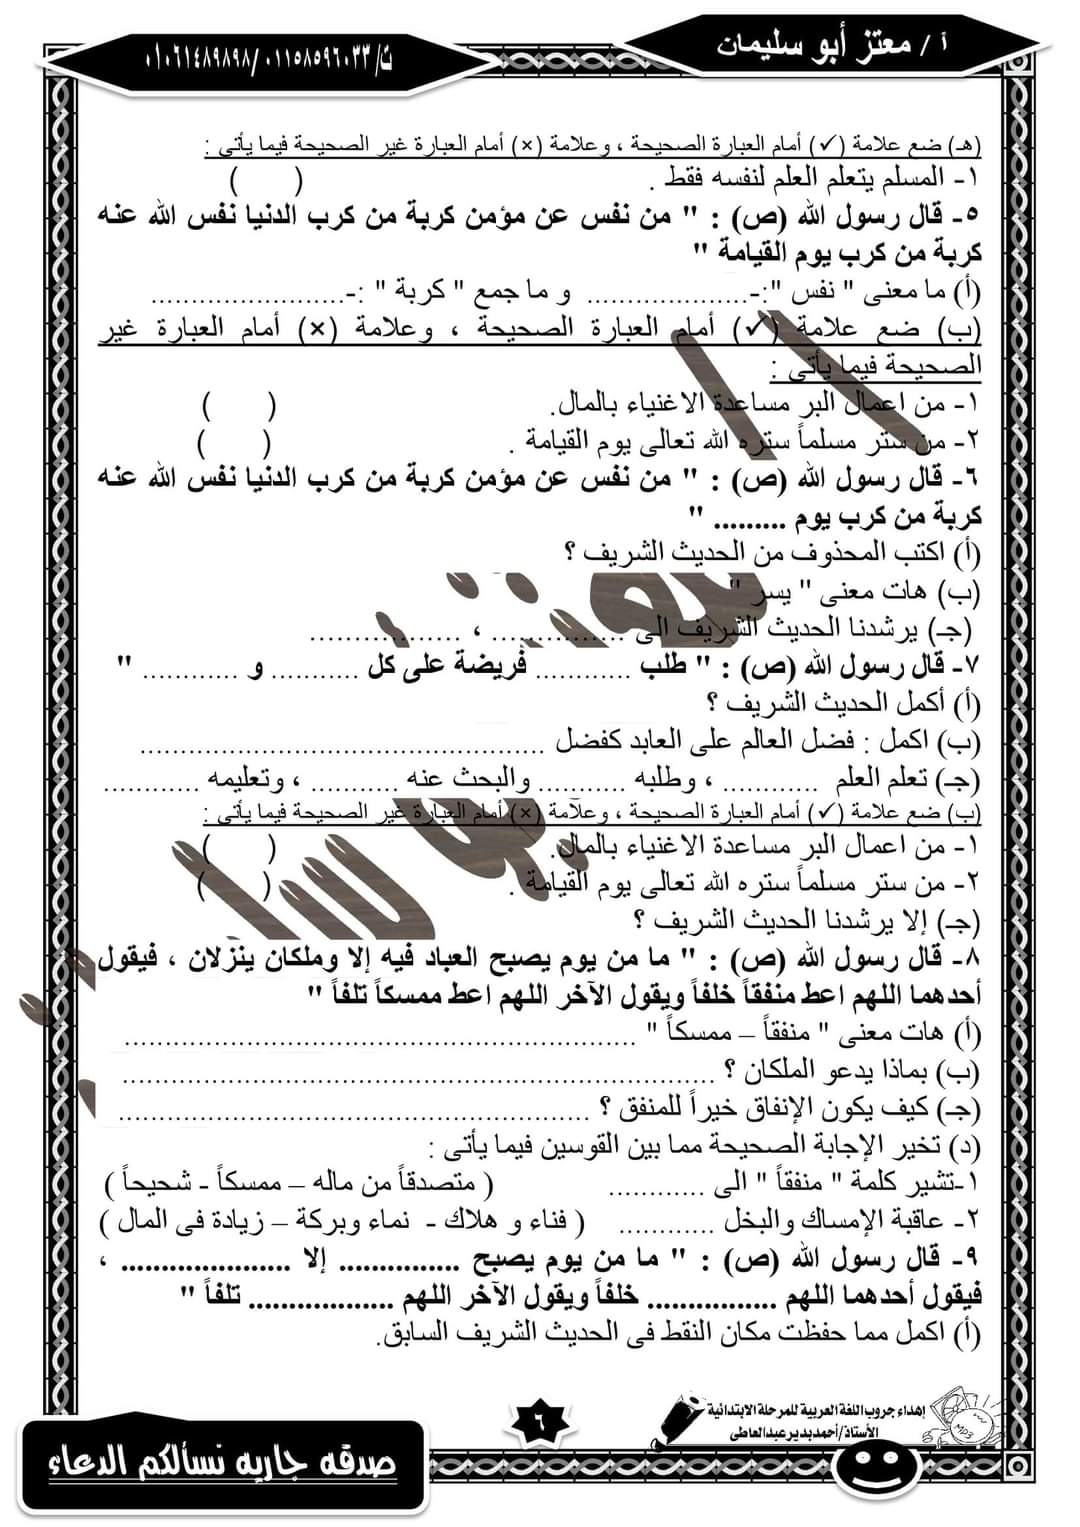 أ / معتز أبو سليمان
ت/ ٠١١٥٨٥٩٦٠٣٣ /٠١٠٦١٤٨٩٨٩٨
(هـ) ضع علامة (✓) أمام العبارة الصحيحة ، وعلامة (×) أمام العبارة غير الصحيحة فيما يأتى :
١- المسلم يتعلم العلم لنفسه فقط . ( )
٥- قال رسول الله (ص) : " من نفس عن مؤمن كربة من كرب الدنيا نفس الله عنه
كربة من كرب يوم القيامة "
(أ) ما معنى " نفس ":-.................... و ما جمع " كربة " :-........................
(ب) ضع علامة (✓) أمام العبارة الصحيحة ، وعلامة (×) أمام العبارة غير
الصحيحة فيما يأتى :
١- من اعمال البر مساعدة الاغنياء بالمال. ( )
٢- من ستر مسلماً ستره الله تعالى يوم القيامة . ( )
٦- قال رسول الله (ص) : " من نفس عن مؤمن كربة من كرب الدنيا نفس الله عنه
كربة من كرب يوم ......... "
(أ) اكتب المحذوف من الحديث الشريف ؟
(ب) هات معنى " يسر "
(جـ) يرشدنا الحديث الشريف الى ................. ، ...................
٧- قال رسول الله (ص) : " طلب ............ فريضة على كل ........... و ............ "
(أ) أكمل الحديث الشريف ؟
(ب) اكمل : فضل العالم على العابد كفضل ..................................................
(جـ) تعلم العلم ............ ، وطلبه ........... والبحث عنه ........... ، وتعليمه ............
(ب) ضع علامة (✓) أمام العبارة الصحيحة ، وعلامة (×) أمام العبارة غير الصحيحة فيما يأتى :
١- من اعمال البر مساعدة الاغنياء بالمال. ( )
٢- من ستر مسلماً ستره الله تعالى يوم القيامة . ( )
(جـ) إلا يرشدنا الحديث الشريف ؟
٨- قال رسول الله (ص) : " ما من يوم يصبح العباد فيه إلا وملكان ينزلان ، فيقول
أحدهما اللهم اعط منفقاً خلفاً ويقول الآخر اللهم اعط ممسكاً تلفاً "
(أ) هات معنى " منفقاً – ممسكاً " ................................................................
(ب) بماذا يدعو الملكان ؟ ..........................................................................
(جـ) كيف يكون الإنفاق خيراً للمنفق ؟ ...........................................................
(د) تخير الإجابة الصحيحة مما بين القوسين فيما يأتى :
١-تشير كلمة " منفقاً " الى ............ ( متصدقاً من ماله – ممسكاً - شحيحاً )
٢- عاقبة الإمساك والبخل ............ ( فناء و هلاك - نماء وبركة – زيادة فى المال )
٩- قال رسول الله (ص) : " ما من يوم يصبح ............... إلا ..................... ،
فيقول أحدهما اللهم ................ خلفاً ويقول الآخر اللهم .................. تلفاً "
(أ) اكمل مما حفظت مكان النقط فى الحديث الشريف السابق.
اهداء جروب اللغة العربية للمرحلة الابتدائية
الأستاذ/أحمد بدير عبدالعاطى
MP3
٦
صدقه جاريه نسألكم الدعاء